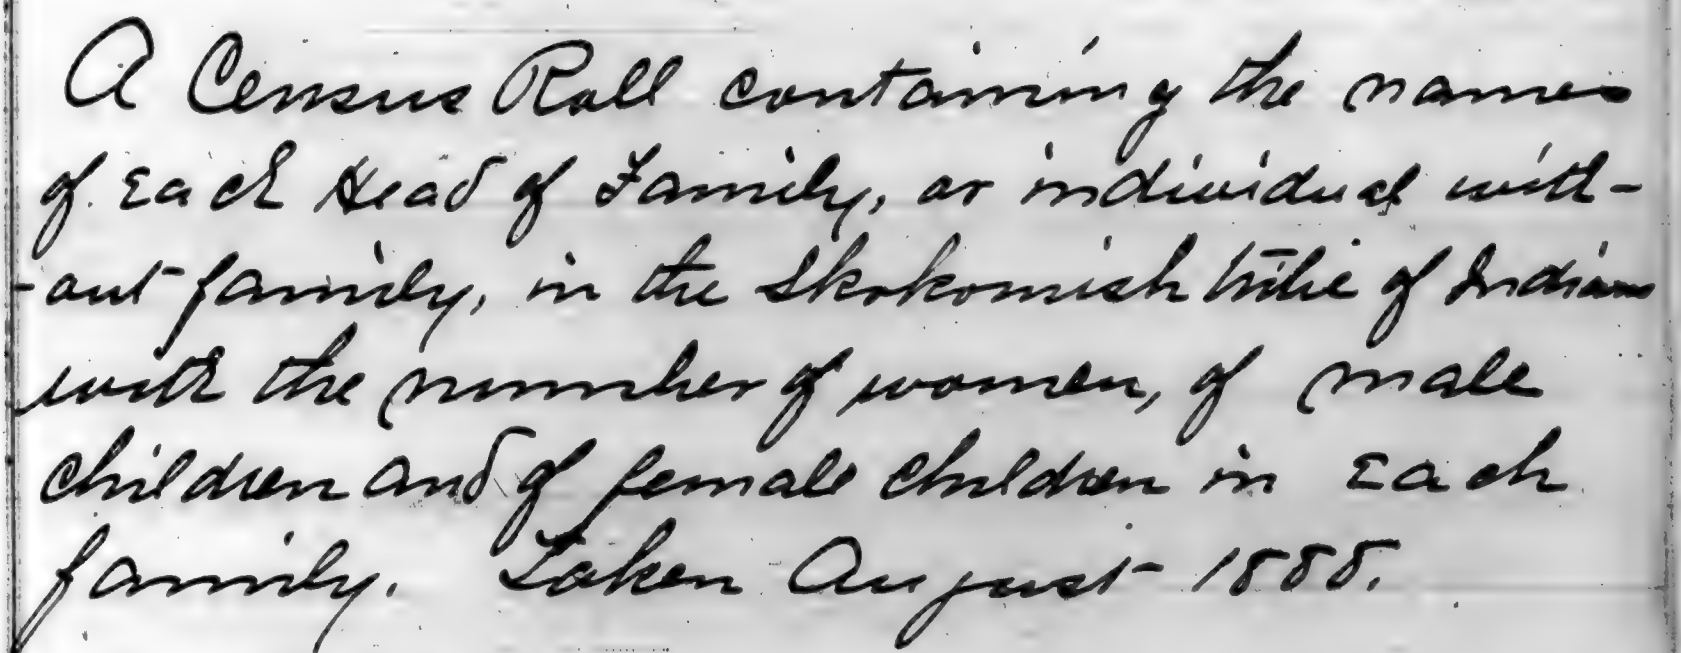 A Census Roll containing the names
of Each Head of Family, or individual with-
-out family, in the Skokomish tribe of Indians
with the number of women, of male
children and of female children in Each
family. Taken August 1888.